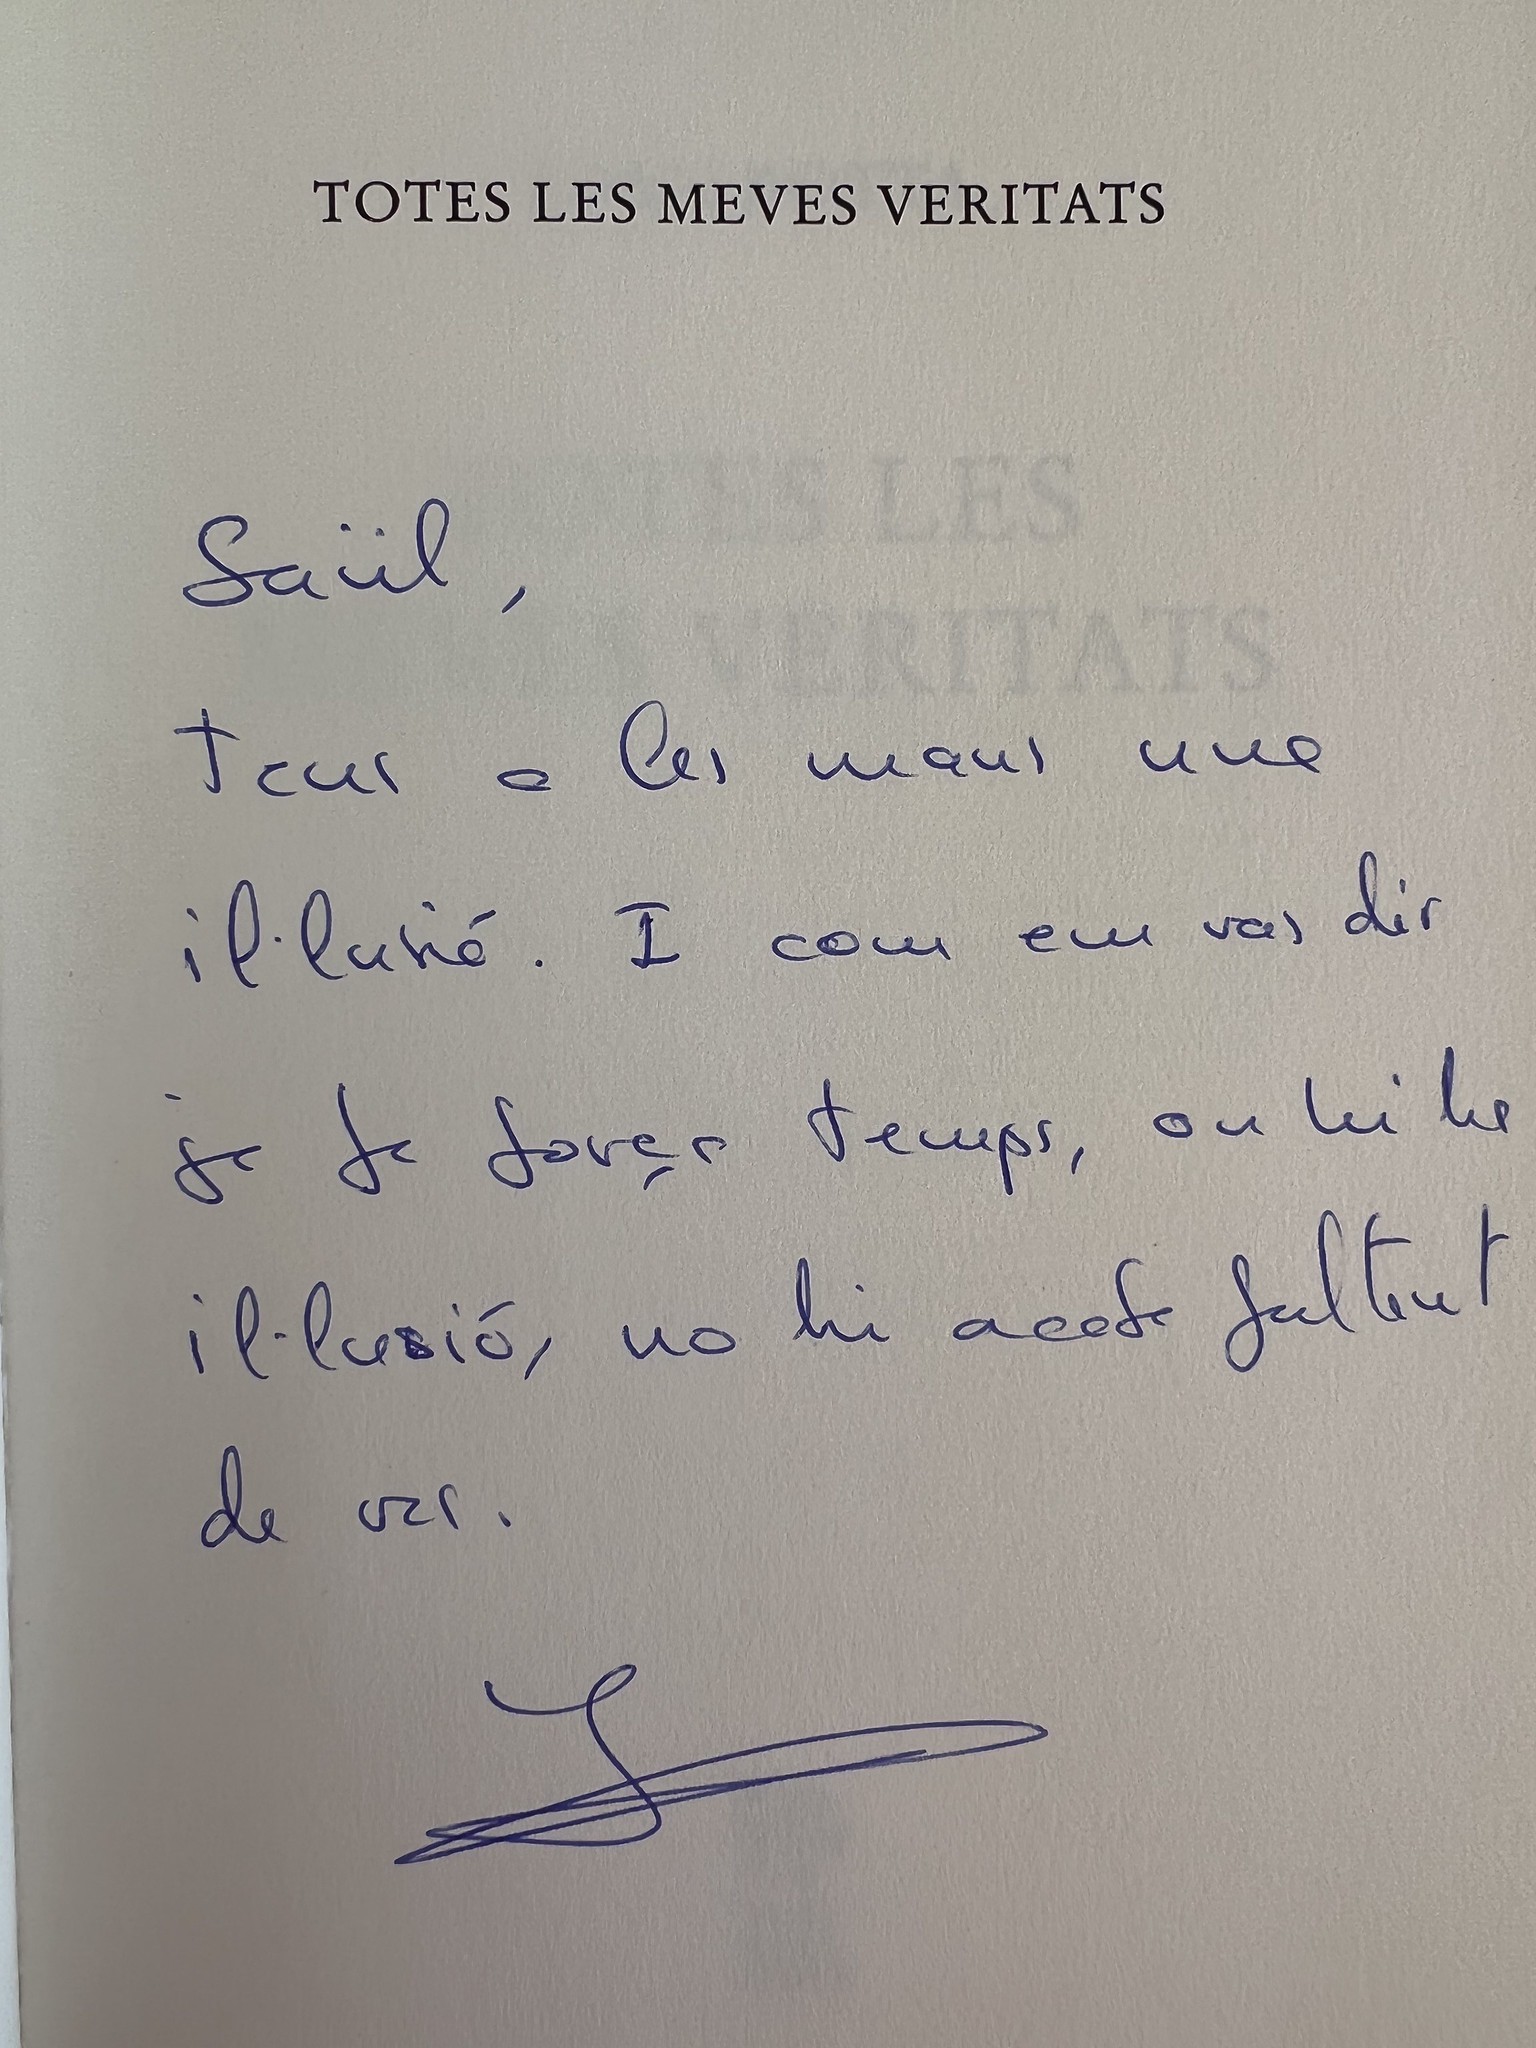 TOTES LES MEVES VERITATS
TES LES
VERITATS
Saül,
Tens a les mans una
il·lusió. I com em vas dir
ja fa força temps, on hi ha
il·lusió, no hi acaba faltant
de res.